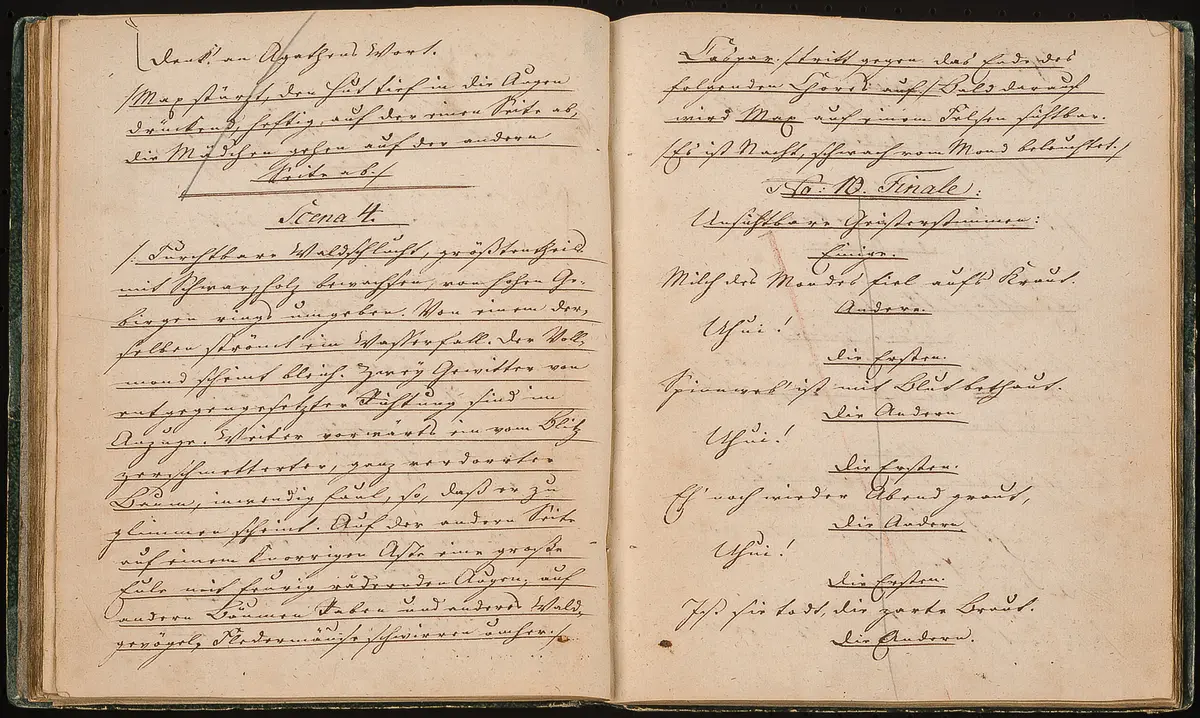 Denk' an Agathens Wort.
/Max stürzt, den Hut tief in die Augen
drückend, heftig, auf der einen Seite ab,
die Mädchen gehen auf der andern
Seite ab./
Scena 4.
/: Furchtbare Waldschlucht, größtentheils
mit Schwarzholz bewachsen, von hohen Ge-
birgen rings umgeben. Von einem der-
selben strömt ein Wasserfall. Der Voll-
mond scheint bleich. Zwey Gewitter von
entgegengesetzter Richtung sind im
Anzuge. Weiter vorwärts ein vom Blitz
zerschmetterter, ganz verdorrter
Baum, inwendig faul, so, daß er zu
glimmen scheint. Auf der andern Seite
auf einem knorrigen Aste eine große
Eule mit feurig rädernden Augen, auf
andern Bäumen Raben und anderes Wald-
gevögel, Fledermäuse schwirren umher:/
Caspar. /tritt gegen das Ende des
folgenden Chores auf/ Bald darauf
wird Max auf einem Felsen sichtbar.
/Es ist Nacht, schwach vom Mond beleuchtet./
No: 10. Finale:
Unsichtbare Geisterstimmen:
Einige.
Milch des Mondes fiel aufs Kraut.
Andere.
Uhui!
Die Ersten.
Spinnweb' ist mit Blut bethaut.
Die Andern
Uhui!
Die Ersten.
Eh' noch wieder Abend graut,
Die Andern
Uhui!
Die Ersten.
Ist sie todt, die zarte Braut.
Die Andern.